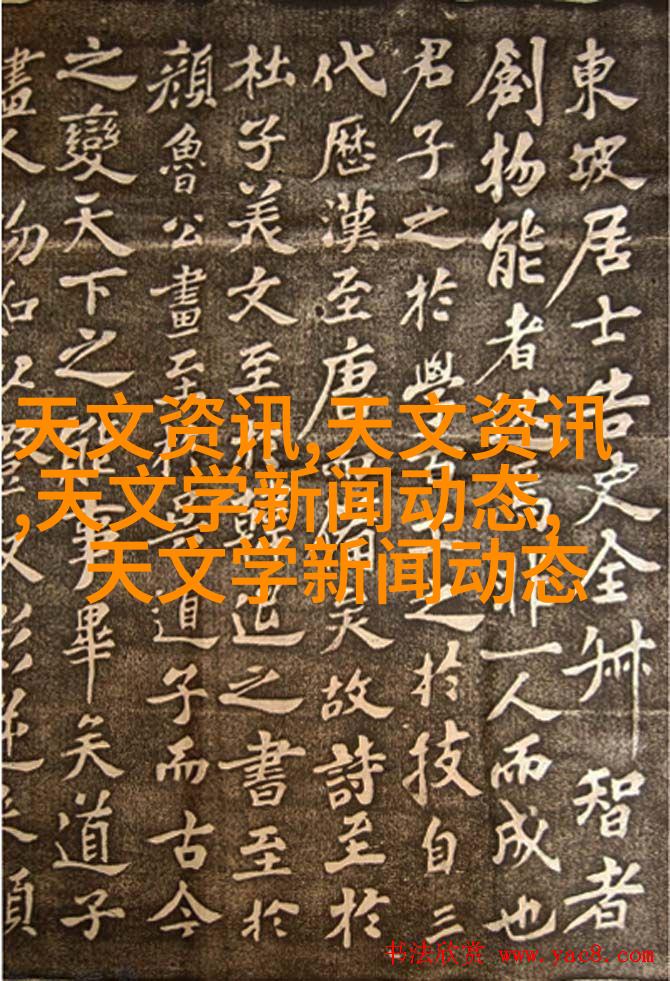 東坡居士告史全叔智者
創物能者述焉非一人而成也
君子之於學百工之於技自三
代歷漢至唐而備矣故詩至於
杜子美文至於韓退之書至於
顏魯公畫至於吳道子而古今
之變天下之能事畢矣道子
畫人物如以燈取影逆來順
天文资讯,天文资讯
,天文学新闻动态,
天文学新闻动态
书法欣赏 www.yac8.com